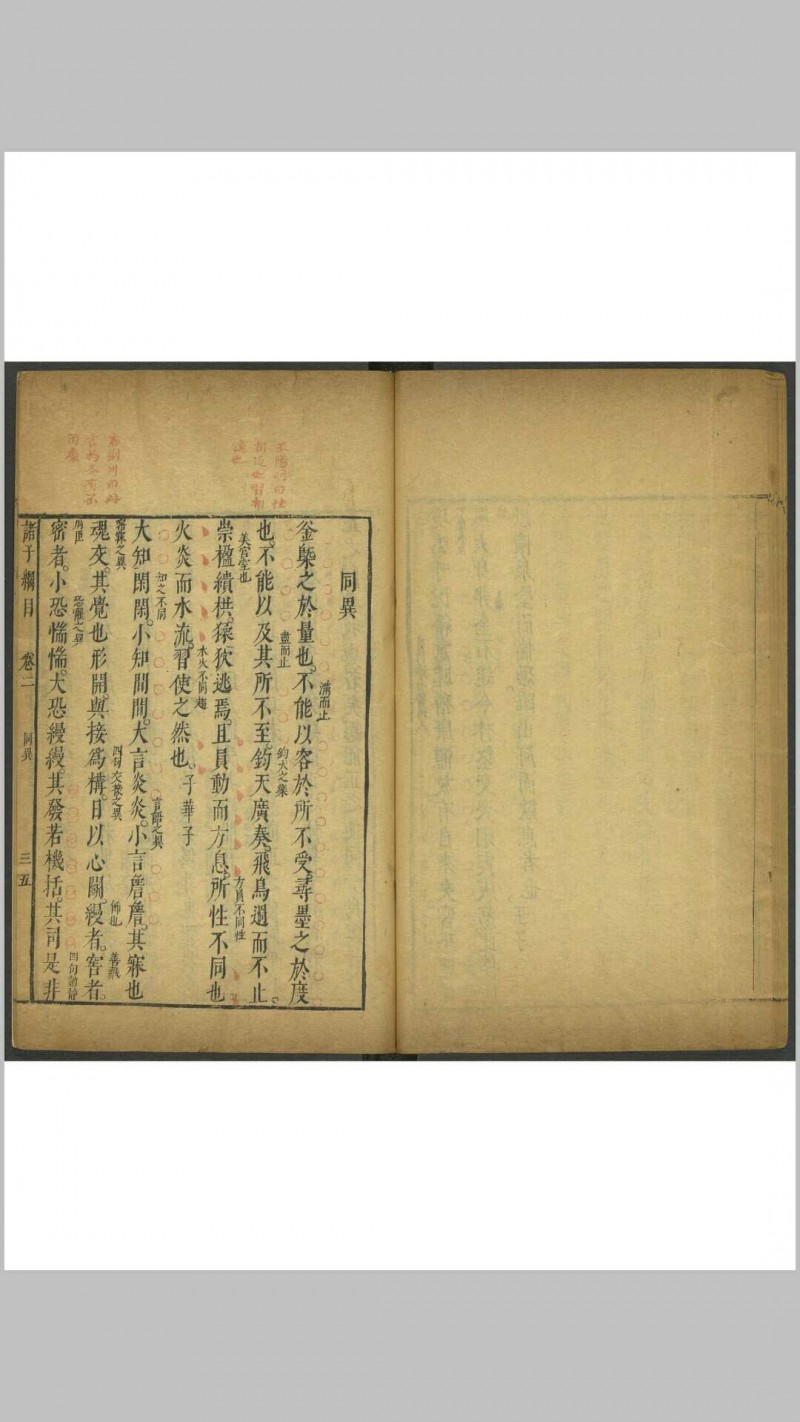 同異
釜㮣之於量也。不能以容於所不受。尋墨之於度
滿而止
也。不能以及其所不至。鈞天廣奏。飛鳥過而不止。
盡而止
鈞天之樂
崇楹繢栱。猿狖逃焉。且員動而方息。所性不同也
美宮室也
方員不同性
火炎而水流。習使之然也。子華子
水火不同趨
大知閑閑。小知間間。大言炎炎。小言詹詹。其寐也
知之不同
言語之異
魂交。其覺也形開。與接爲構。日以心鬭。縵者。窖者。
寤寐之異
四句交接之異
密者。小恐惴惴。大恐縵縵。其發若機括。其司是非
恐懼之異
四句
諸子綱目
卷二
同異
三五